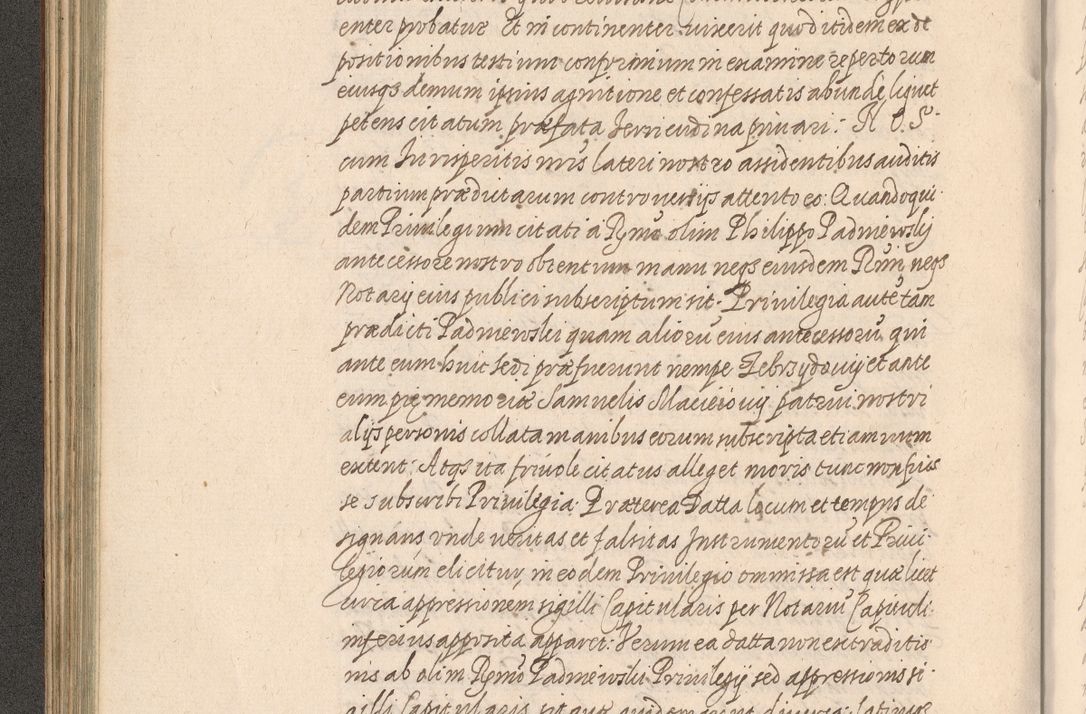 enter probatur Et in continenter vixerit quod itidem ex de
positionibus testium confrimium in examine repertorum
eiusqs demum ipsius agnitione et confessatis abunde liquet
petens citatum præfata Jervicudina privari: N. O. S.
cum Jurisperitis nris lateri nostro assidentibus auditis
partium prædictarum controversijs attento eo: Quandoqui
dem Privilegium citati à Rmo olim Philippo Padniewskij
antecessore nostro obtentum manu neqs eiusdem Rmi, neqs
Notarij eius publici subscriptum sit. Privilegia autē tam
prædicti Padniewskij quam aliorū eius antecessorū, qui
ante eum huic sedi præfuerunt nempe Zebrzydovij et ante
eum pię memoriæ Samuelis Macieiovij patrui nostri
alijs personis collata manibus eorum subscripta etiamnum
extent: Atqs ita frivole citatus alleget moris tunc non fuis
se subscribi Privilegia. Præterea Datta locum et tempus de
signans vnde veritas et falsitas Instrumentorū et Privi
legiorum elicitur, in eodem Privilegio ommissa est quæ licet
circa appressionem sigilli Capitularis per Notariū Capituli
inferius apposita apparet: Verum ea datta non est traditio
nis ab olim Rmo Padniewski Privilegij sed appressionis si
gilli Capitularis